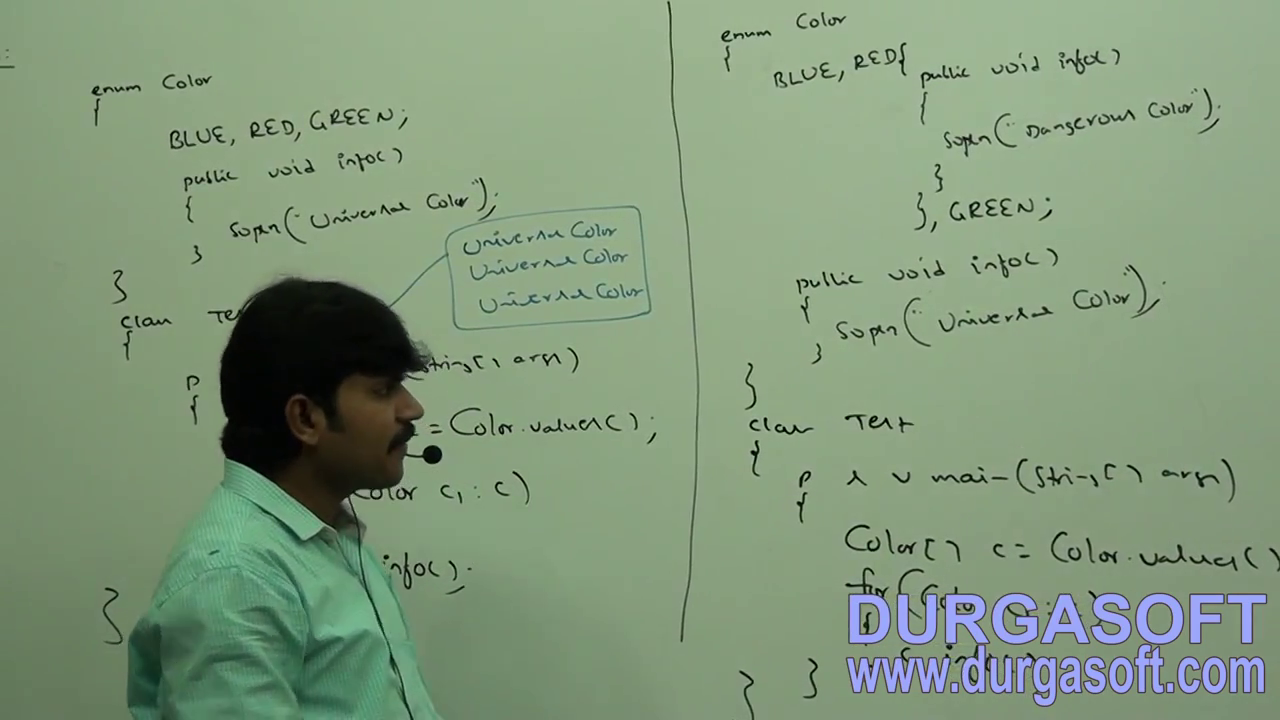 enum Color
{
BLUE, RED, GREEN;
public void info()
{
Sopln("Universal Color");
}
}
Universal Color
Universal Color
Universal Color
class
{
P
{
String[] args)
= Color.values();
Color c1 : c)
info();
}
enum Color
{
BLUE, RED{
public void info()
{
Sopln("Dangerous Color");
}
}, GREEN;
public void info()
{
Sopln("Universal Color");
}
}
class Test
{
P s v main(String[] args)
{
Color[] c = Color.values()
for(
}
}
DURGASOFT
www.durgasoft.com